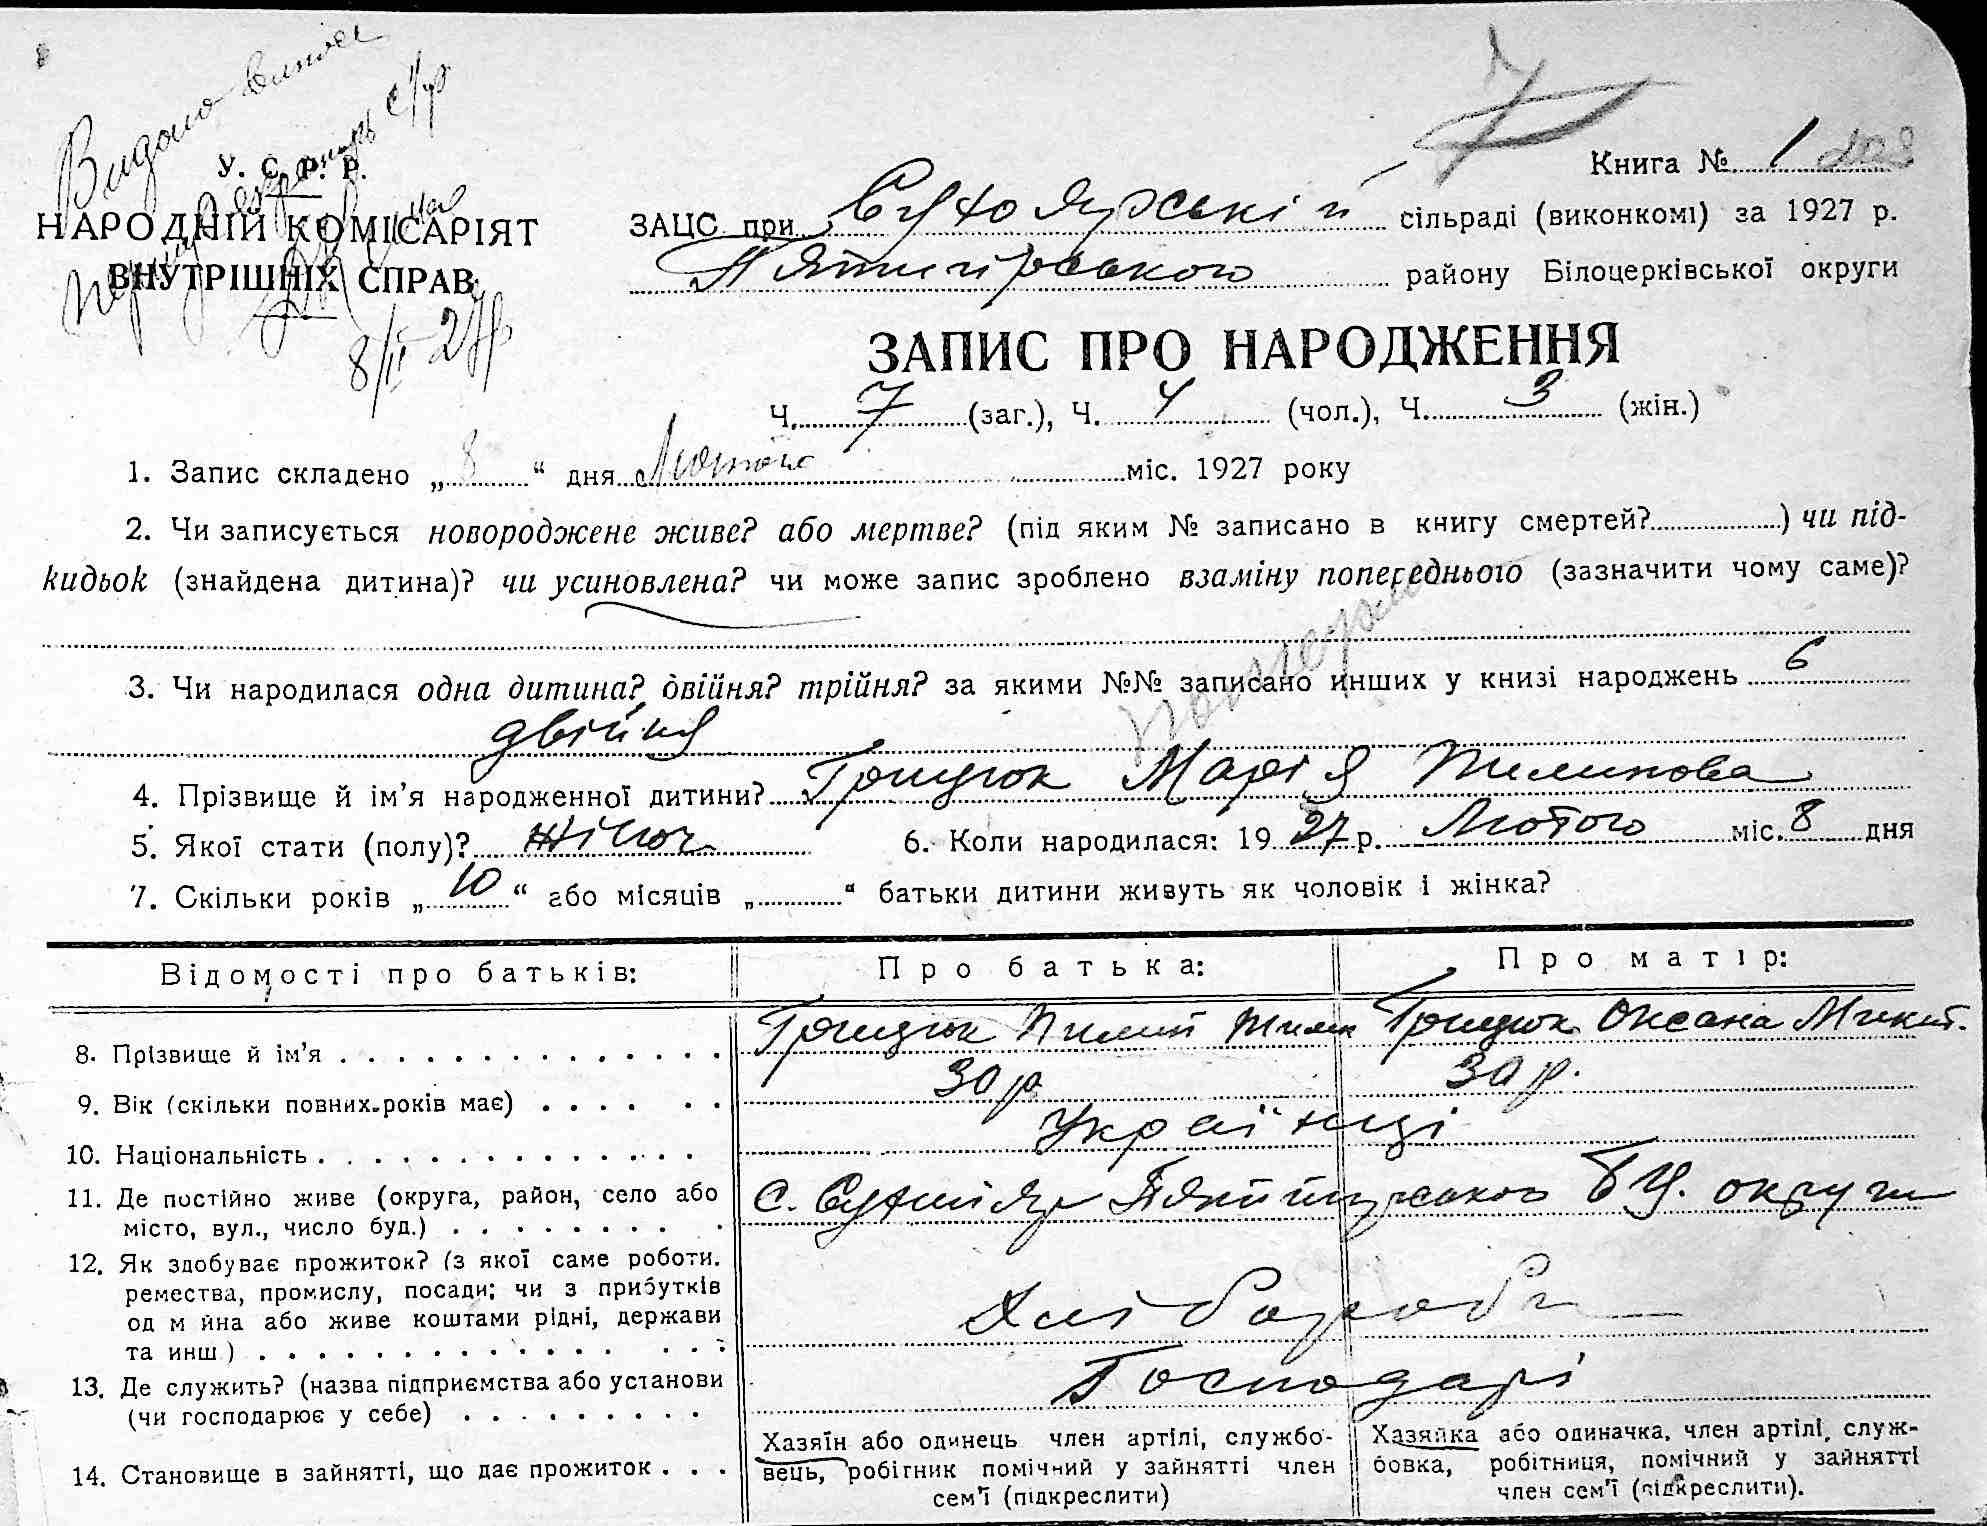 Видано
У. С. Р. Р.
НАРОДНІЙ КОМІСАРІЯТ
ВНУТРІШНІХ СПРАВ
8/II 27р
7
Книга № 1
ЗАЦС при Сухоярській сільраді (виконкомі) за 1927 р.
Пятигірського району Білоцерківської округи
ЗАПИС ПРО НАРОДЖЕННЯ
Ч. 7 (заг.), Ч. 4 (чол.), Ч. 3 (жін.)
1. Запис складено „ 8 “ дня Лютого міс. 1927 року
2. Чи записується новороджене живе? або мертве? (під яким № записано в книгу смертей? ) чи під-
кидьок (знайдена дитина)? чи усиновлена? чи може запис зроблено взаміну попереднього (зазначити чому саме)?
3. Чи народилася одна дитина? двійня? трійня? за якими №№ записано инших у книзі народжень 6
двійня
4. Прізвище й ім’я народженної дитини? Грицюк Марія Пилипова
5. Якої стати (полу)? жіноч 6. Коли народилася: 19 27 р. Лютого міс. 8 дня
7. Скільки років „ 10 “ або місяців „ “ батьки дитини живуть як чоловік і жінка?
Відомості про батьків: Про батька: Про матір:
8. Прізвище й ім’я Грицюк Пилип Грицюк Оксана Микит.
9. Вік (скільки повних років має) 30 р. 30 р.
10. Національність Українці
11. Де постійно живе (округа, район, село або с. Сухий Яр Пятигірського БЦ. округи
місто, вул., число буд.)
12. Як здобуває прожиток? (з якої саме роботи.
ремества, промислу, посади; чи з прибутків
од м йна або живе коштами рідні, держави Хлібороби
та инш.)
13. Де служить? (назва підприємства або установи Господарі
(чи господарює у себе)
14. Становище в зайнятті, що дає прожиток
Хазяїн або одинець член артілі, службо-
вець, робітник помічний у зайнятті член
сем’ї (підкреслити)
Хазяйка або одиначка, член артілі, служ-
бовка, робітниця, помічний у зайнятті
член сем’ї (підкреслити).